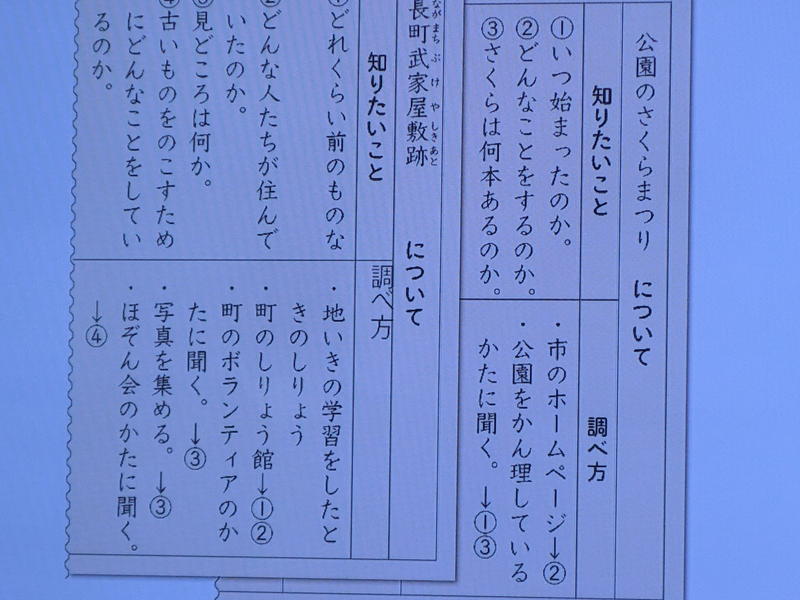 公園のさくらまつり について
知りたいこと
①いつ始まったのか。
②どんなことをするのか。
③さくらは何本あるのか。
調べ方
・市のホームページ→②
・公園をかん理している
かたに聞く。→①③
長町武家屋敷跡 について
ながまちぶけやしきあと
知りたいこと
①どれくらい前のものな
②どんな人たちが住んで
いたのか。
③見どころは何か。
④古いものをのこすため
にどんなことをしてい
るのか。
調べ方
・地いきの学習をしたと
きのしりょう
・町のしりょう館→①②
・町のボランティアのか
たに聞く。→③
・写真を集める。→③
・ほぞん会のかたに聞く。
→④